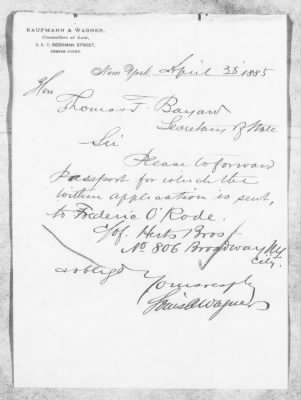 KAUFMANN & WAGNER,
Counsellors at Law,
3, 5, 7, BEEKMAN STREET,
TEMPLE COURT.
New York, April 1885
Hon
Thomas F. Bayard
Secretary of State
Sir
Please to forward
passport for which the
within application is sent,
to Frederic O'Rode.
c/o. Herts Bros
No 806 Broadway N.Y.
City.
& oblige
Yours resply
Louis Wagner